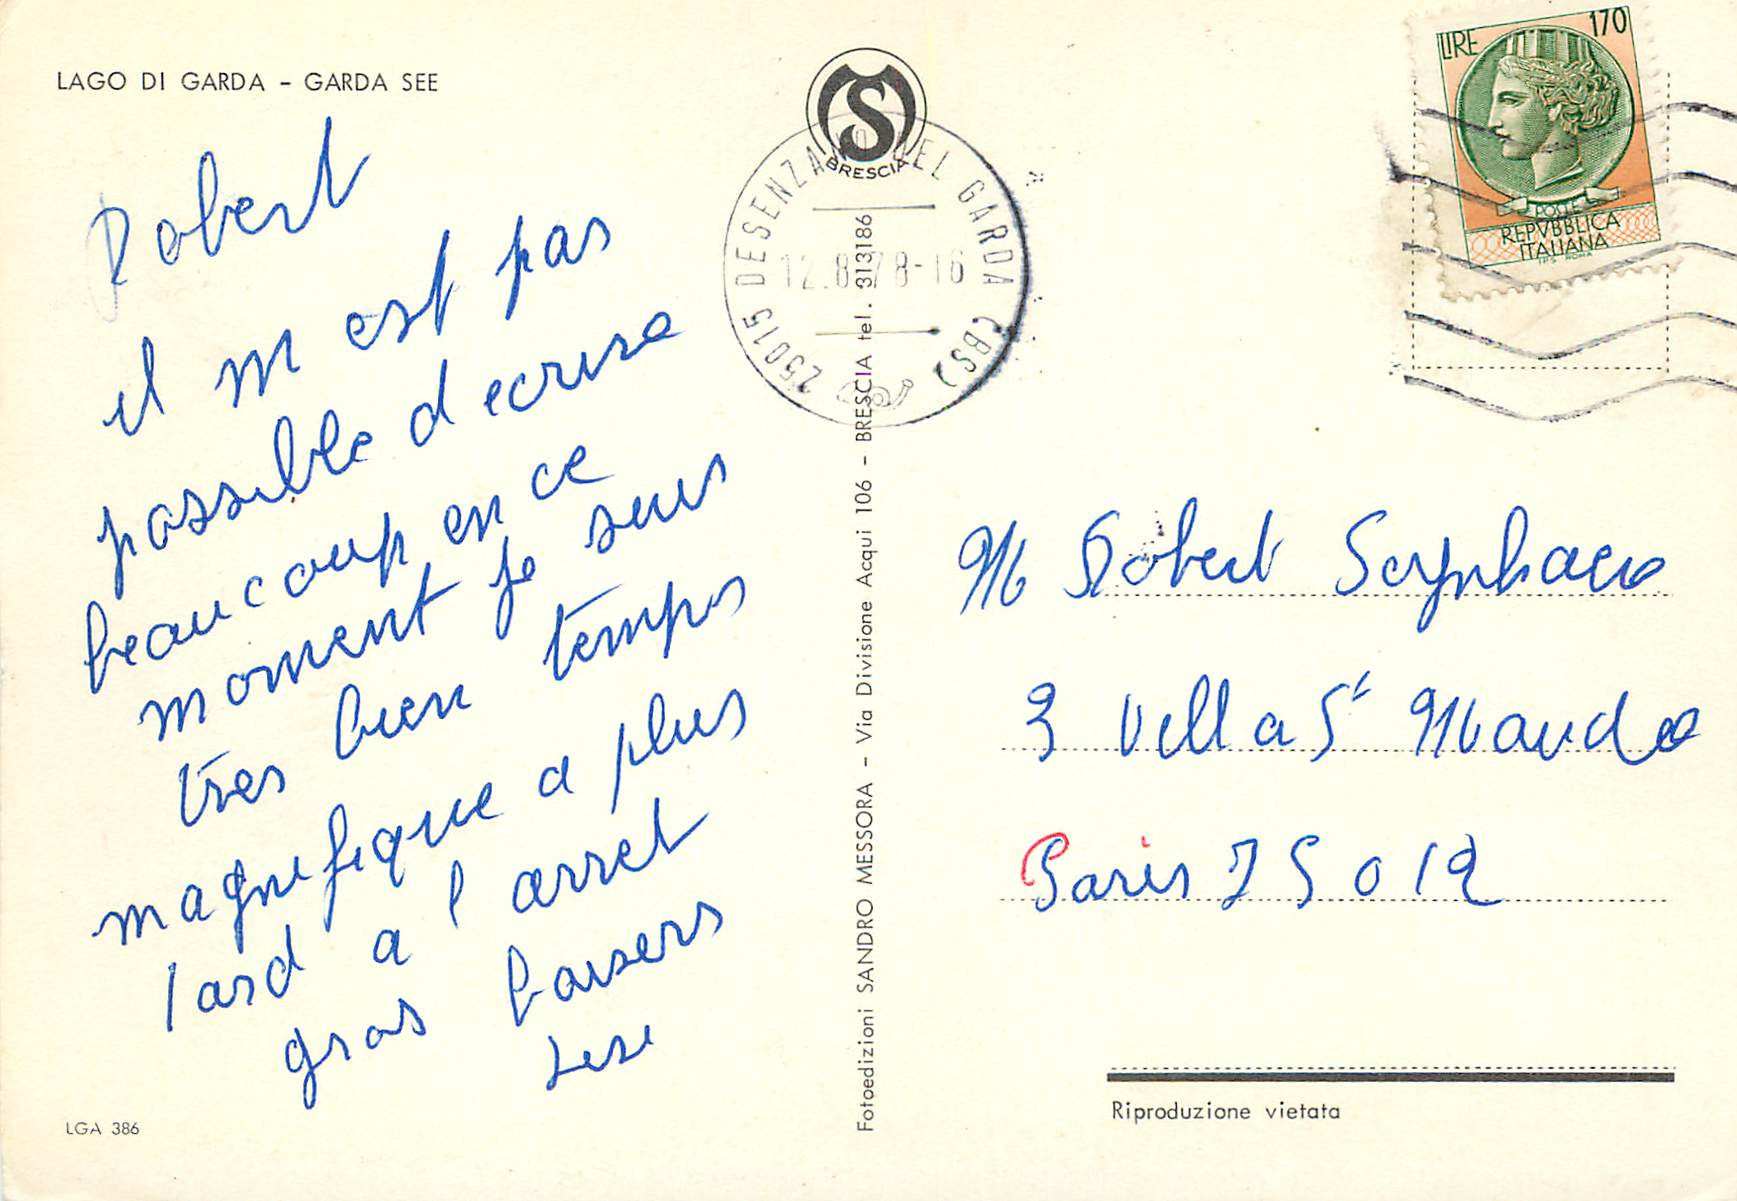 LAGO DI GARDA - GARDA SEE
Robert
il m est pas
possible d ecrire
beaucoup en ce
moment je suis
tres bien temps
magnifique a plus
tard a l arret
gros baisers
LGA 386
MS
BRESCIA
25015 DESENZANO DEL GARDA (BS)
12.8.78-16
Fotoedizioni SANDRO MESSORA - Via Divisione Acqui 106 - BRESCIA tel. 313186
LIRE 170
POSTE
REPVBBLICA
ITALIANA
I.P.S. ROMA
M Robert
3 Villa St Mande
Paris 75012
Riproduzione vietata